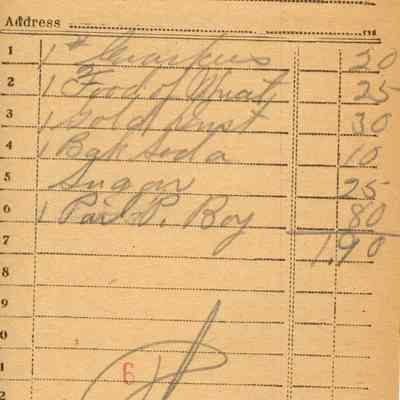 Address
1 1 # Crackers 20
2 1 Food of Wheat 25
3 1 Gold Dust 30
4 1 Bak Soda 10
5 Sugar 25
6 1 Pail P. Roy 80
7 1.90
8
9
0
1 6
2